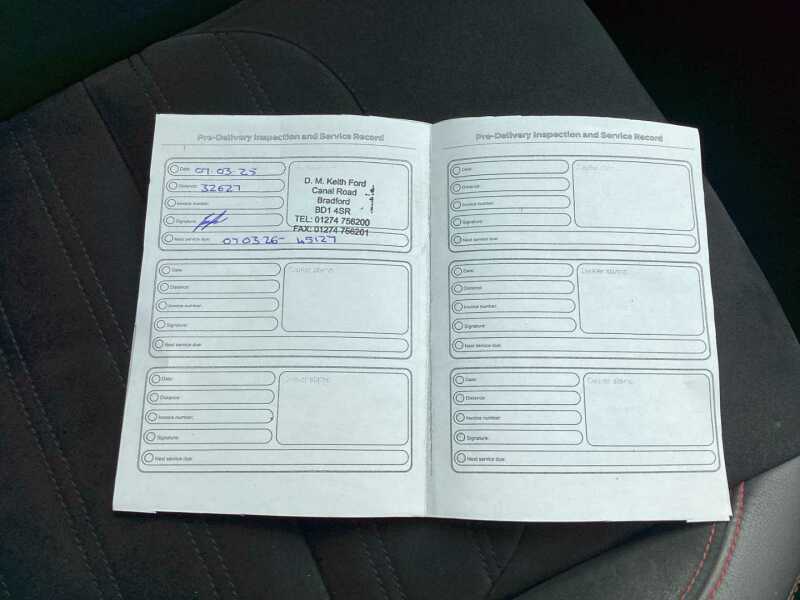 Pre-Delivery Inspection and Service Record
Date: 07.03.25
Distance: 32627
Invoice number:
Signature:
Next service due: 07 03 26 - 45127
D. M. Keith Ford
Canal Road
Bradford
BD1 4SR
TEL: 01274 756200
FAX: 01274 756201
Date:
Distance:
Invoice number:
Signature:
Next service due:
Dealer stamp
Date:
Distance:
Invoice number:
Signature:
Next service due:
Dealer stamp
Pre-Delivery Inspection and Service Record
Date:
Distance:
Invoice number:
Signature:
Next service due:
Dealer stamp
Date:
Distance:
Invoice number:
Signature:
Next service due:
Dealer stamp
Date:
Distance:
Invoice number:
Signature:
Next service due:
Dealer stamp